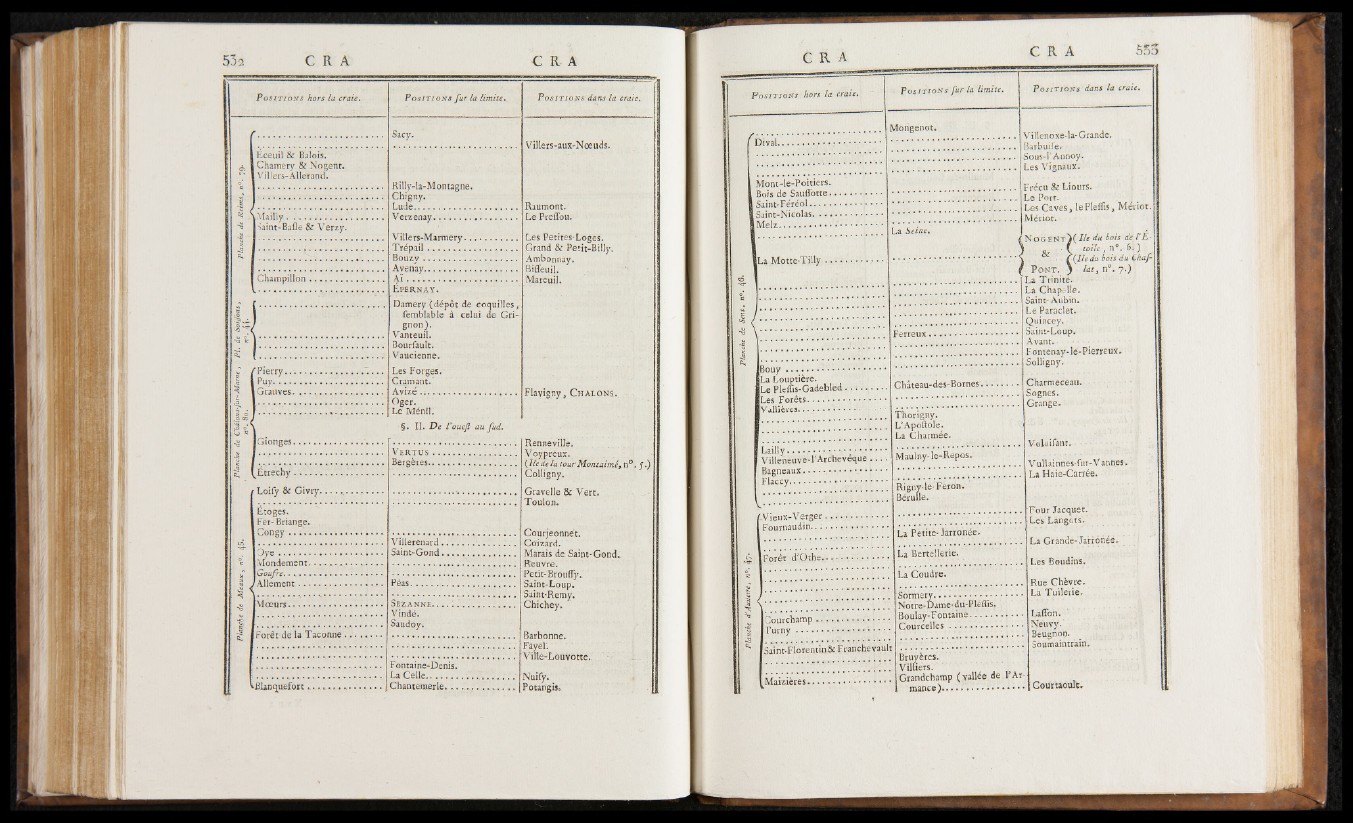 532 C R A C R A
POSITIONS hors la craie. POSITIONS sur la limite. POSITIONS dans la craie.
Planche de Reims, n°. 79.
Sacy.
Villers-aux-Nœuds.
Éceuil & Balois.
Chamery & Nogent.
Villers-Allerand.
Rilly-la-Montagne.
Chigny.
Lude. Raumont.
Mailly. Verzenay. Le Preſſou.
Saint-Baſle & Verzy.
Villers-Marmery. Les Petites-Loges.
Trépail Grand & Petit-Billy.
Bouzy Ambonnay.
Avenay. Biſſeuil.
Champillon Aï Mareuil.
ÉPERNAY.
Pl. de Soiſſons, n°. 44.
Damery (dépôt de coquilles,
ſemblable à celui de Gri-
gnon).
Vanteuil.
Bourſault.
Vaucienne.
Planche de Châlons-ſur-Marne, n°. 80.
Pierry. Les Forges.
Puy. Cramant.
Grauves. Avizé Flavigny, CHALONS.
Oger.
Le Ménil.
§. II. De l'oueſt au ſud.
Gionges. Renneville.
VERTUS Voypreux.
Bergères. (Ile de la tour Montaimé, n°. 5.)
Étrechy Colligny.
Planche de Meaux, n°. 45.
Loiſy & Givry. Gravelle & Vert.
Toulon.
Étoges.
Fer-Briange.
Congy Courjeonnet.
Villerenard Coizard.
Oye Saint-Gond Marais de Saint-Gond.
Mondement. Reuvre.
Goufre. Petit-Brouſſy.
Allement Péas. Saint-Loup.
Saint-Remy.
Mœurs. SÉZANNE. Chichey.
Vindé.
Saudoy.
Forêt de la Taconne Barbonne.
Fayel.
Ville-Louvotte.
Fontaine-Denis.
La Celle. Nuiſy.
Blanquefort Chantemerle. Potangis.
C R A C R A 533
POSITIONS hors la craie. POSITIONS ſur la limite. POSITIONS dans la craie.
Planche de Sens, n°. 46.
Mongenot.
Villenoxe-la-Grande.
Dival. Barbuiſe.
Sous-l'Aunoy.
Les Vignaux.
Mont-le-Poitiers.
Bois de Sauſſotte Frécu & Liours.
Saint-Féréol Le Port.
Saint-Nicolas. Les Caves, le Pleſſis, Mériot.
Melz. Mériot.
La Seine.
NOGENT (Ile du bois de l'É-
toile, n°. 6.)
& (Ile du bois du Chaſ-
La Motte-Tilly PONT. lat, n°. 7.)
La Trinité.
La Chapelle.
Saint-Aubin.
Le Paraclet.
Quincey.
Ferreux Saint-Loup.
Avant.
Fontenay-le-Pierreux.
Solligny.
Bouy
La Louptière.
Le Pleſſis-Gadebled Château-des-Bornes. Charmeceau.
Les Forêts. Sognes.
Vallières. Grange.
Thorigny.
L'Apoſtole.
La Charmée.
Lailly Volaiſant.
Villeneuve-l'Archevêque Maulny-le-Repos.
Bagneaux Vullainnes-ſur-Vannes.
Flaccy. La Haie-Carrée.
Rigny-le-Feron.
Bérulle.
Planche d'Auxerre, n°. 47.
Vieux-Verger Four Jacquet.
Fournaudin. Les Langots.
La Petite-Jarronée.
La Grande-Jarronée.
Forêt d'Othe. La Bertellerie.
Les Boudins.
La Coudre.
Rue Chèvre.
Sormery. La Tuilerie.
Notre-Dame-du-Pleſſis.
Courchamp Boulay-Fontaine. Laſſon.
Turny Courcelles Neuvy.
Beugnon.
Saint-Florentin & Franchevault Soumaintrain.
Bruyères.
Villiers.
Maizières. Grandchamp (vallée de l'Ar-
mance). Courtaoult.